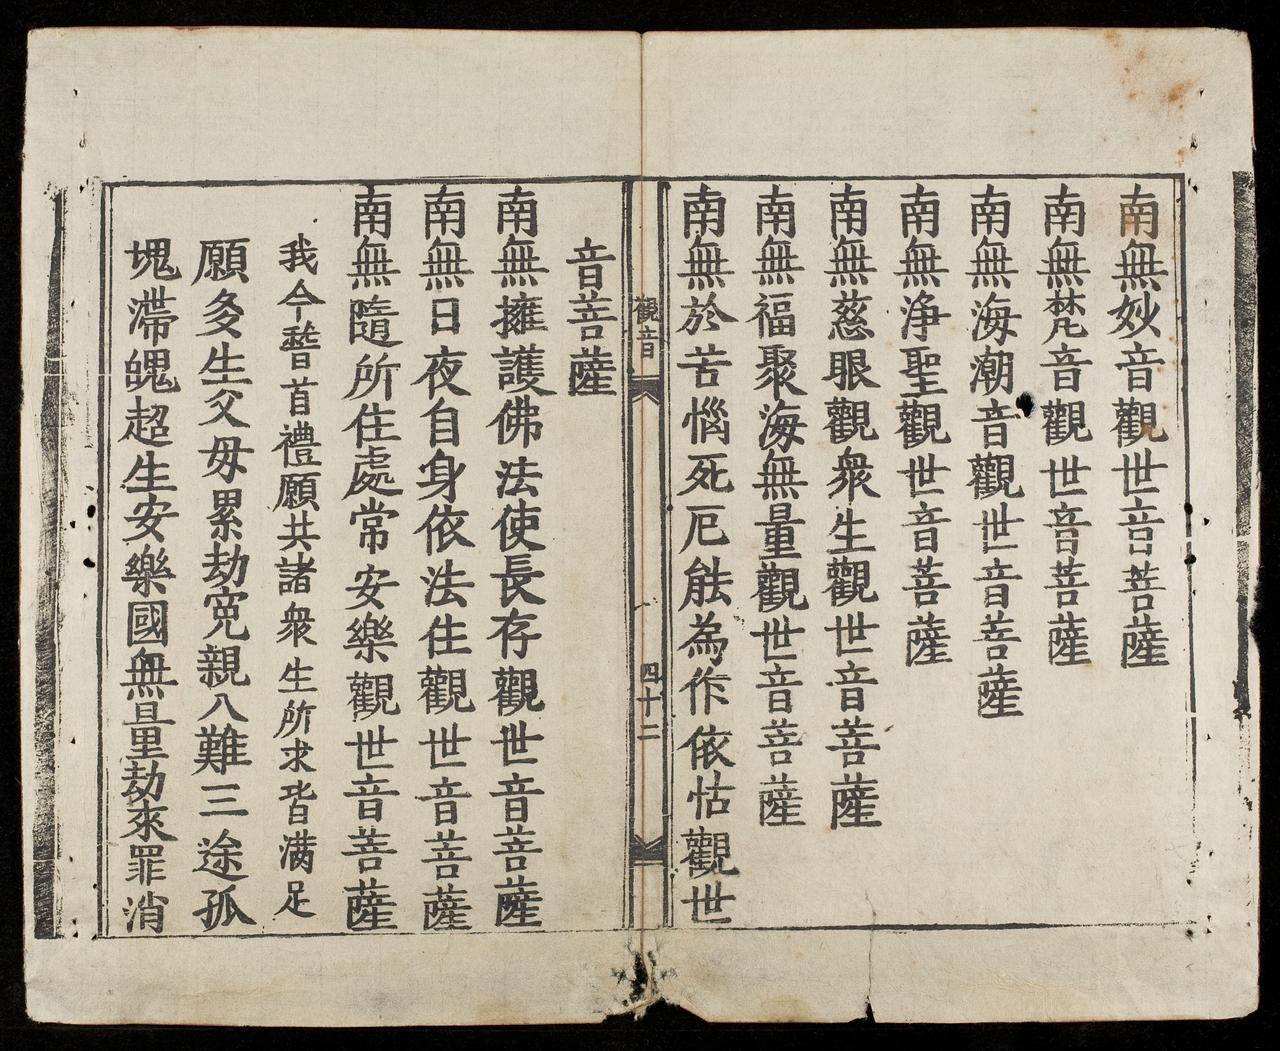 南無妙音觀世音菩薩
南無梵音觀世音菩薩
南無海潮音觀世音菩薩
南無淨聖觀世音菩薩
南無慈眼觀衆生觀世音菩薩
南無福聚海無量觀世音菩薩
南無於苦惱死厄能為作依怙觀世
觀音
四十二
音菩薩
南無擁護佛法使長存觀世音菩薩
南無日夜自身依法住觀世音菩薩
南無隨所住處常安樂觀世音菩薩
我今稽首禮願共諸衆生所求皆滿足
願多生父母累劫冤親八難三途孤
塊滯魄超生安樂國無量劫來罪消